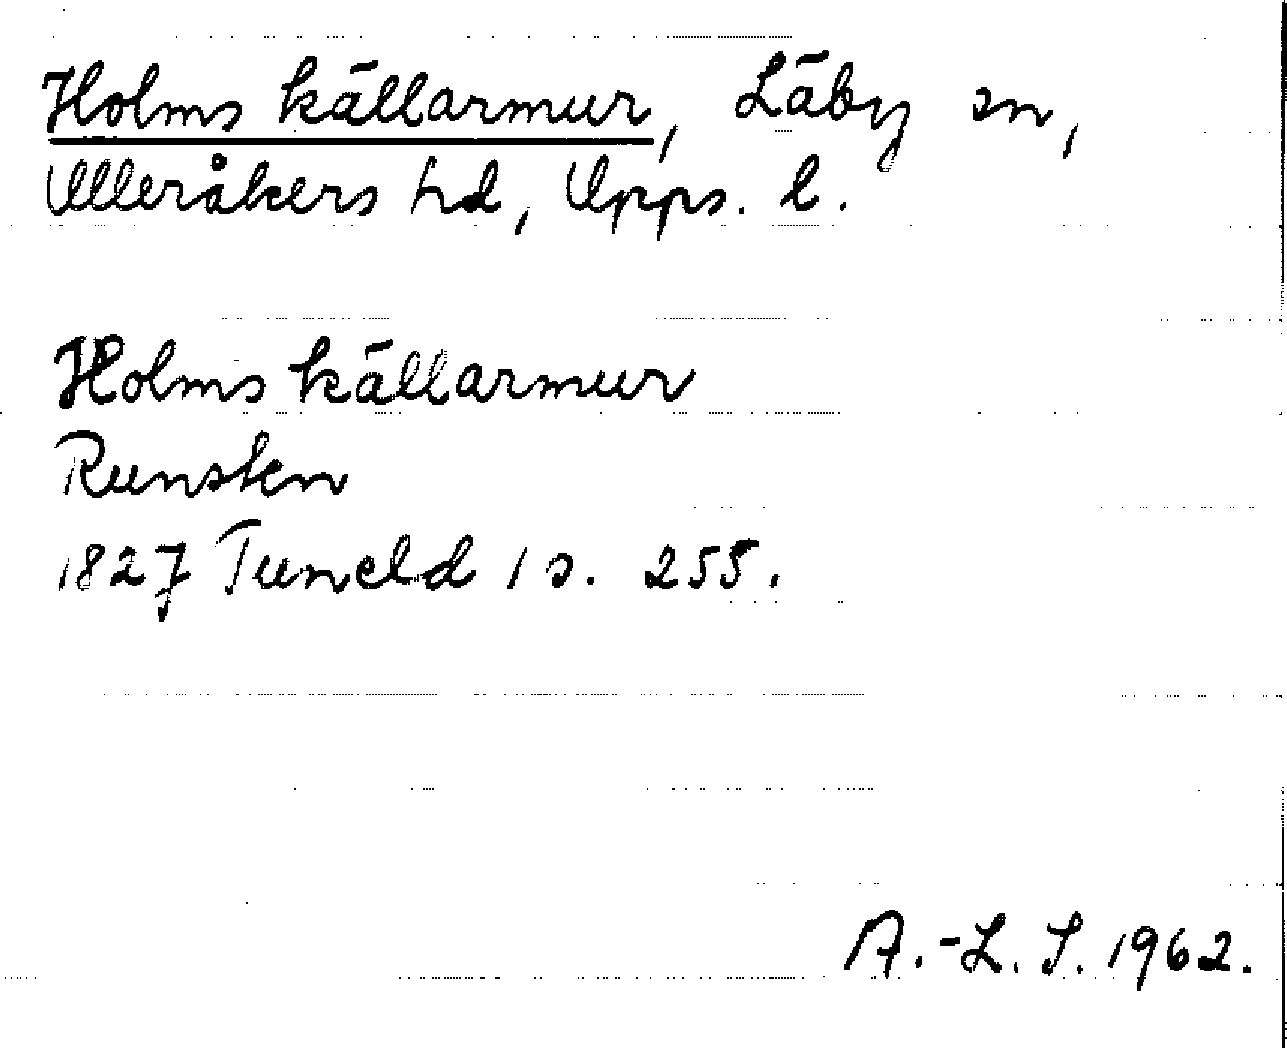 Holms källarmur, Läby sn,
Ulleråkers hd, Upps. l.
Holms källarmur
Runsten
1827 Tuneld 1 s. 255.
A.-L. S. 1962.